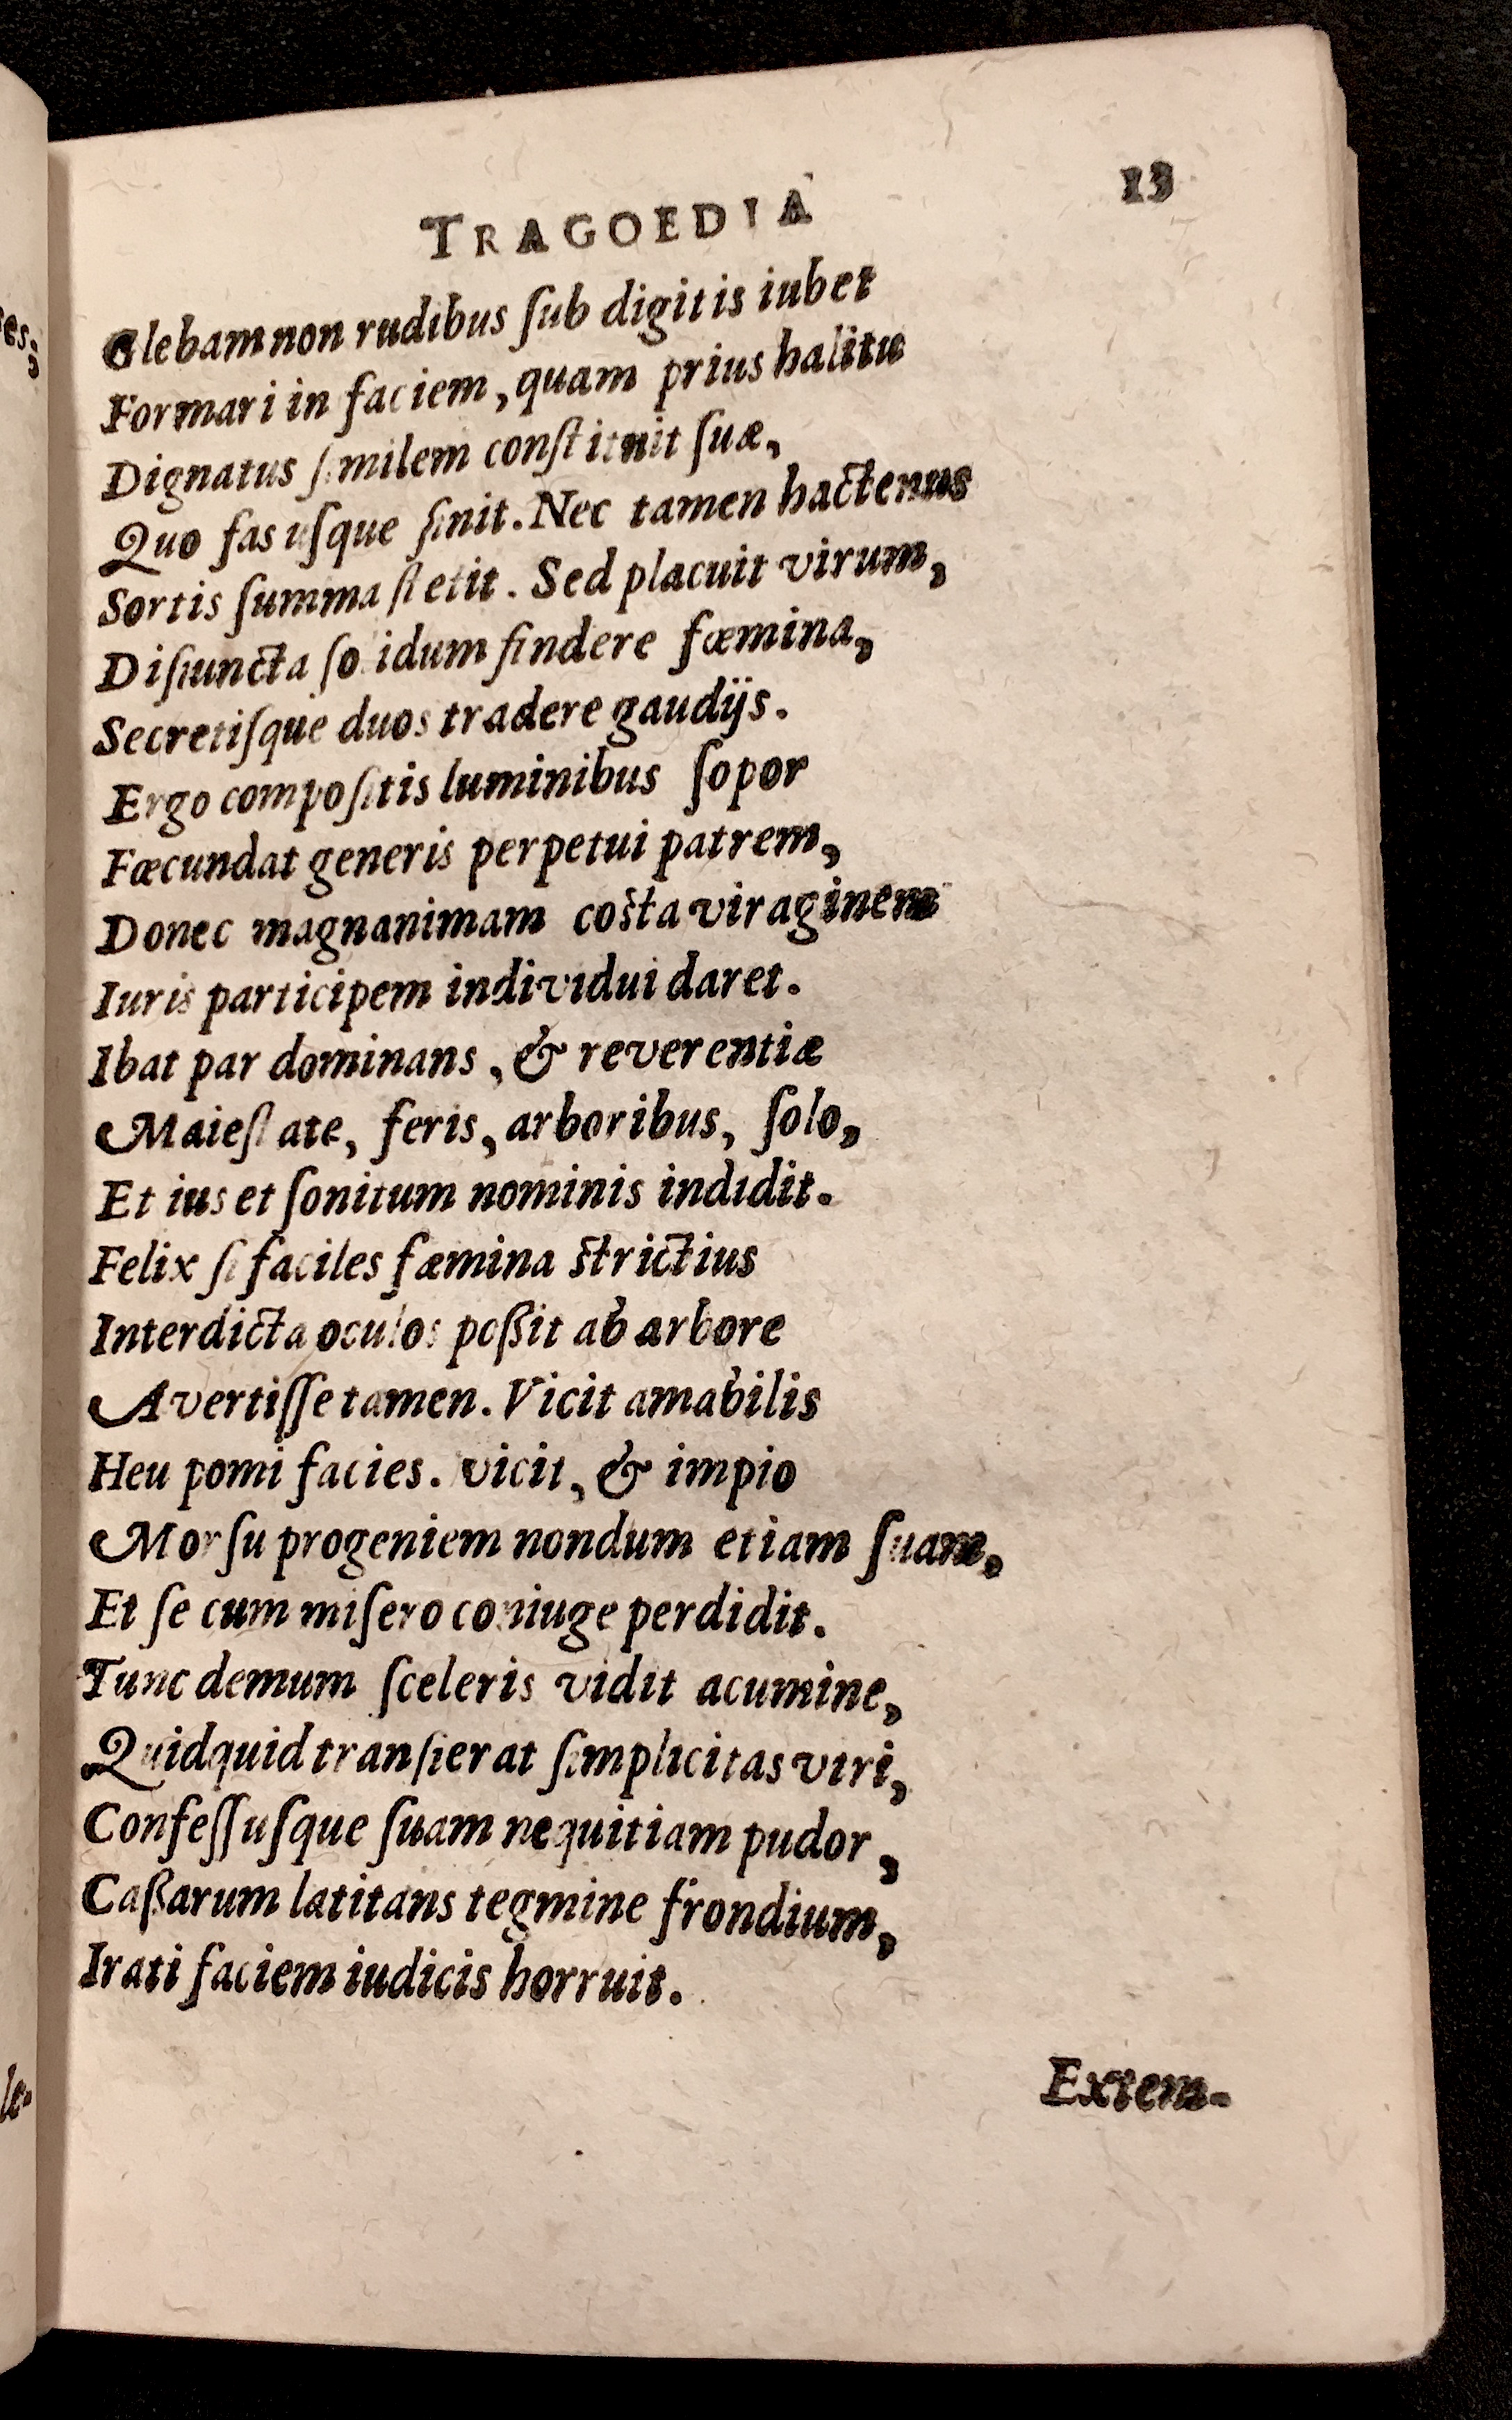 TRAGOEDIA 13
Glebam non rudibus ſub digitis iubet
Formari in faciem, quam prius halitu
Dignatus ſimilem conſtituit ſuæ,
Quo fas uſque ſinit. Nec tamen hactenus
Sortis ſumma ſtetit. Sed placuit virum,
Diſiuncta ſolidum findere fœmina,
Secretiſque duos tradere gaudijs.
Ergo compoſitis luminibus ſopor
Fœcundat generis perpetui patrem,
Donec magnanimam coſta viraginem
Iuris participem individui daret.
Ibat par dominans, & reverentiæ
Maieſtate, feris, arboribus, ſolo,
Et ius et ſonitum nominis indidit.
Felix ſi faciles fœmina ſtrictius
Interdicta oculos poßit ab arbore
Avertiſſe tamen. Vicit amabilis
Heu pomi facies. vicit, & impio
Morſu progeniem nondum etiam ſuam,
Et ſe cum miſero coniuge perdidit.
Tunc demum ſceleris vidit acumine,
Quidquid tranſierat ſimplicitas viri,
Confeſſuſque ſuam nequitiam pudor,
Caßarum latitans tegmine frondium,
Irati faciem iudicis horruit.
Extem-